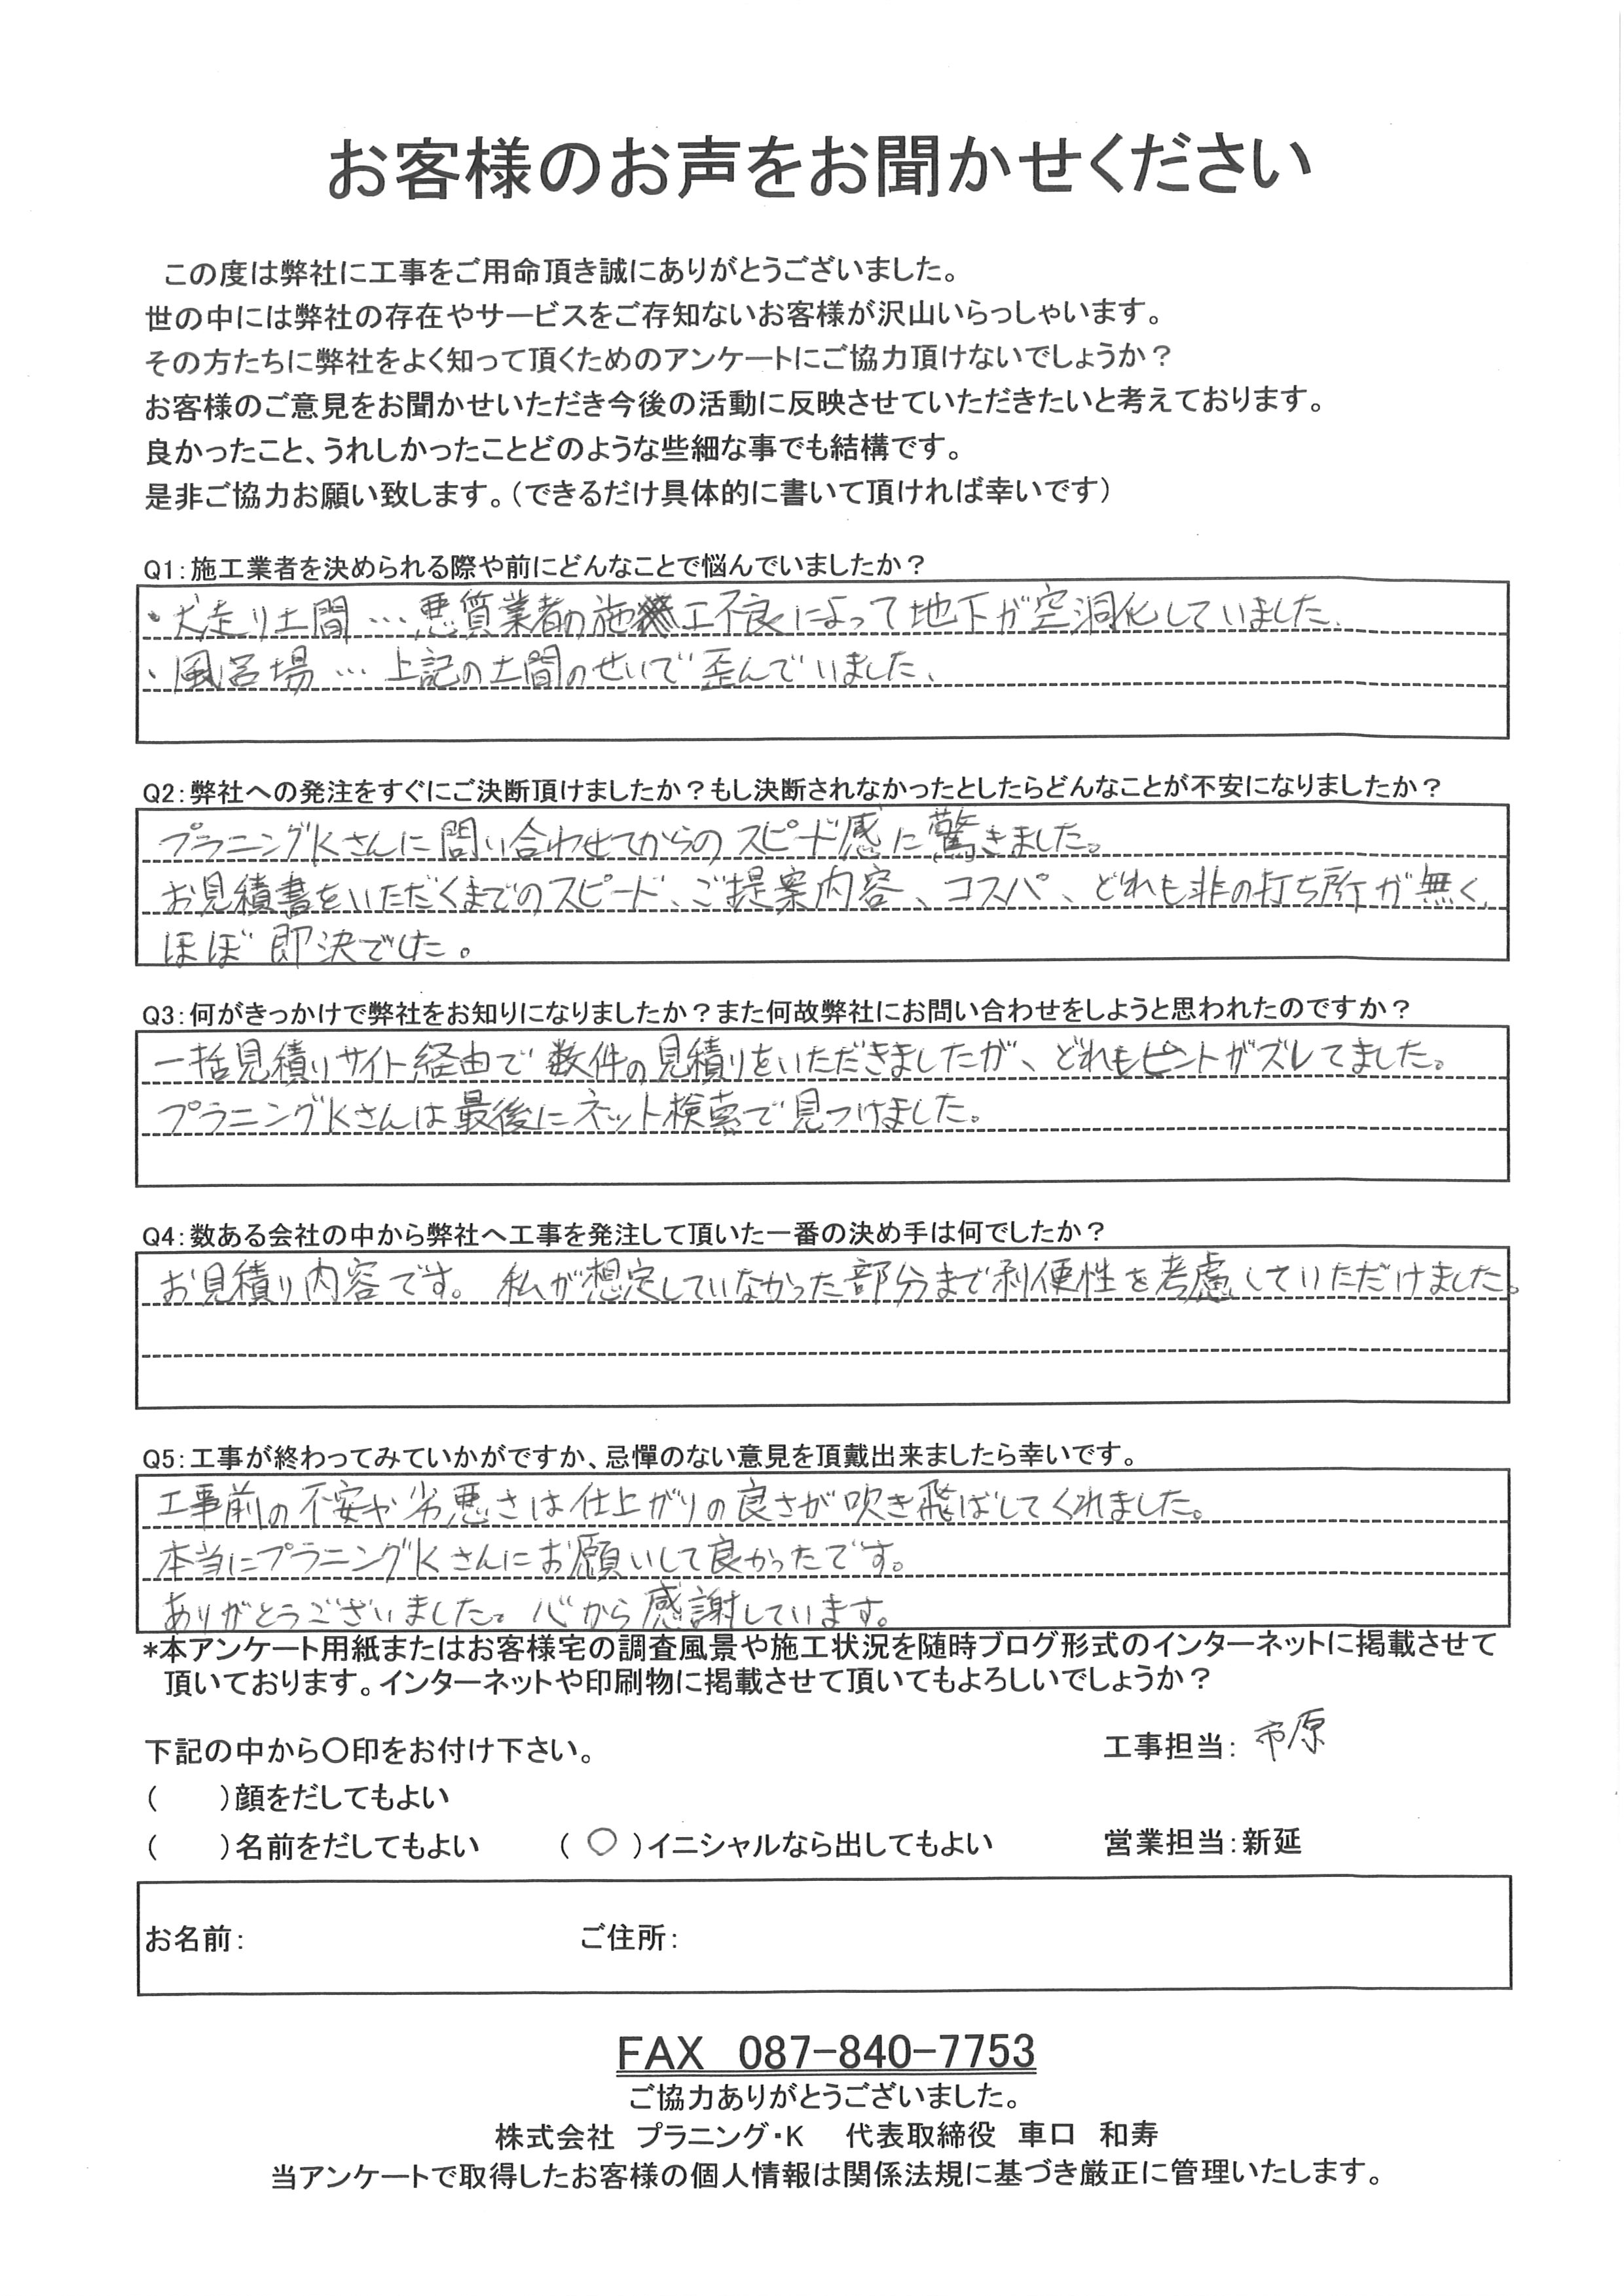 お客様のお声をお聞かせください
この度は弊社に工事をご用命頂き誠にありがとうございました。
世の中には弊社の存在やサービスをご存知ないお客様が沢山いらっしゃいます。
その方たちに弊社をよく知って頂くためのアンケートにご協力頂けないでしょうか？
お客様のご意見をお聞かせいただき今後の活動に反映させていただきたいと考えております。
良かったこと、うれしかったことどのような些細な事でも結構です。
是非ご協力お願い致します。（できるだけ具体的に書いて頂ければ幸いです）
Q1：施工業者を決められる際や前にどんなことで悩んでいましたか？
・犬走り土間…悪質業者の施工不良によって地下が空洞化していました、
・風呂場…上記の土間のせいで歪んでいました、
Q2：弊社への発注をすぐにご決断頂けましたか？もし決断されなかったとしたらどんなことが不安になりましたか？
プラニングKさんに問い合わせてからのスピード感に驚きました。
お見積書をいただくまでのスピード、ご提案内容、コスパ、どれも非の打ち所が無く、
ほぼ即決でした。
Q3：何がきっかけで弊社をお知りになりましたか？また何故弊社にお問い合わせをしようと思われたのですか？
一括見積りサイト経由で数件の見積りをいただきましたが、どれもピントがズレてました。
プラニングKさんは最後にネット検索で見つけました。
Q4：数ある会社の中から弊社へ工事を発注して頂いた一番の決め手は何でしたか？
お見積り内容です。私が想定していなかった部分まで利便性を考慮していただけました。
Q5：工事が終わってみていかがですか、忌憚のない意見を頂戴出来ましたら幸いです。
工事前の不安や劣悪さは仕上がりの良さが吹き飛ばしてくれました。
本当にプラニングKさんにお願いして良かったです。
ありがとうございました。心から感謝しています。
*本アンケート用紙またはお客様宅の調査風景や施工状況を随時ブログ形式のインターネットに掲載させて
頂いております。インターネットや印刷物に掲載させて頂いてもよろしいでしょうか？
下記の中から〇印をお付け下さい。 工事担当：市原
（　　）顔をだしてもよい
（　　）名前をだしてもよい （〇）イニシャルなら出してもよい 営業担当：新延
お名前： ご住所：
FAX 087-840-7753
ご協力ありがとうございました。
株式会社 プラニング・K 代表取締役 車口 和寿
当アンケートで取得したお客様の個人情報は関係法規に基づき厳正に管理いたします。